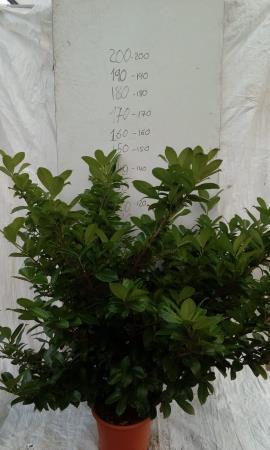 200-200
190-190
180-180
170-170
160-160
150-150
140
120